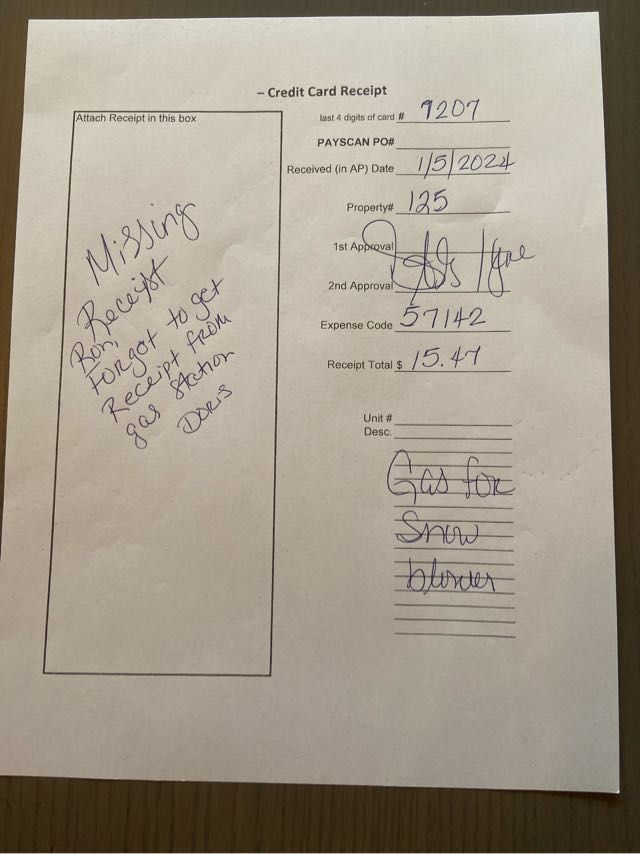 – Credit Card Receipt
Attach Receipt in this box
Missing
Receipt
Ron,
Forgot to get
Receipt from
gas station
Doris
last 4 digits of card # 9207
PAYSCAN PO#
Received (in AP) Date 1/5/2024
Property# 125
1st Approval
2nd Approval
Expense Code 57142
Receipt Total $ 15.47
Unit #
Desc.
Gas for
Snow
blower